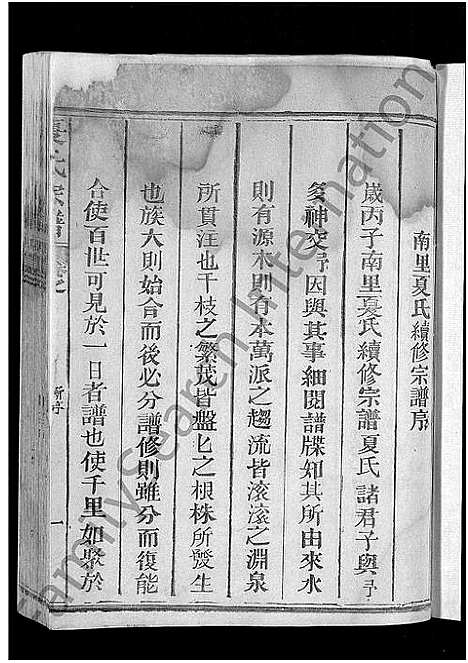 南里夏氏續修宗譜序
歲丙子南里夏氏續修宗譜夏氏諸君子與予
多神交予因與其事細閱譜牒知其所由來水
則有源木則有本萬派之趨流皆滚滚之淵泉
所貫注也千枝之繁茂皆盤匕之根株所發生
也族大則始合而後必分譜修則雖分而復能
合使百世可見於一日者譜也使千里如聚於
夏氏宗譜 卷之 新序 一
FamilySearch International